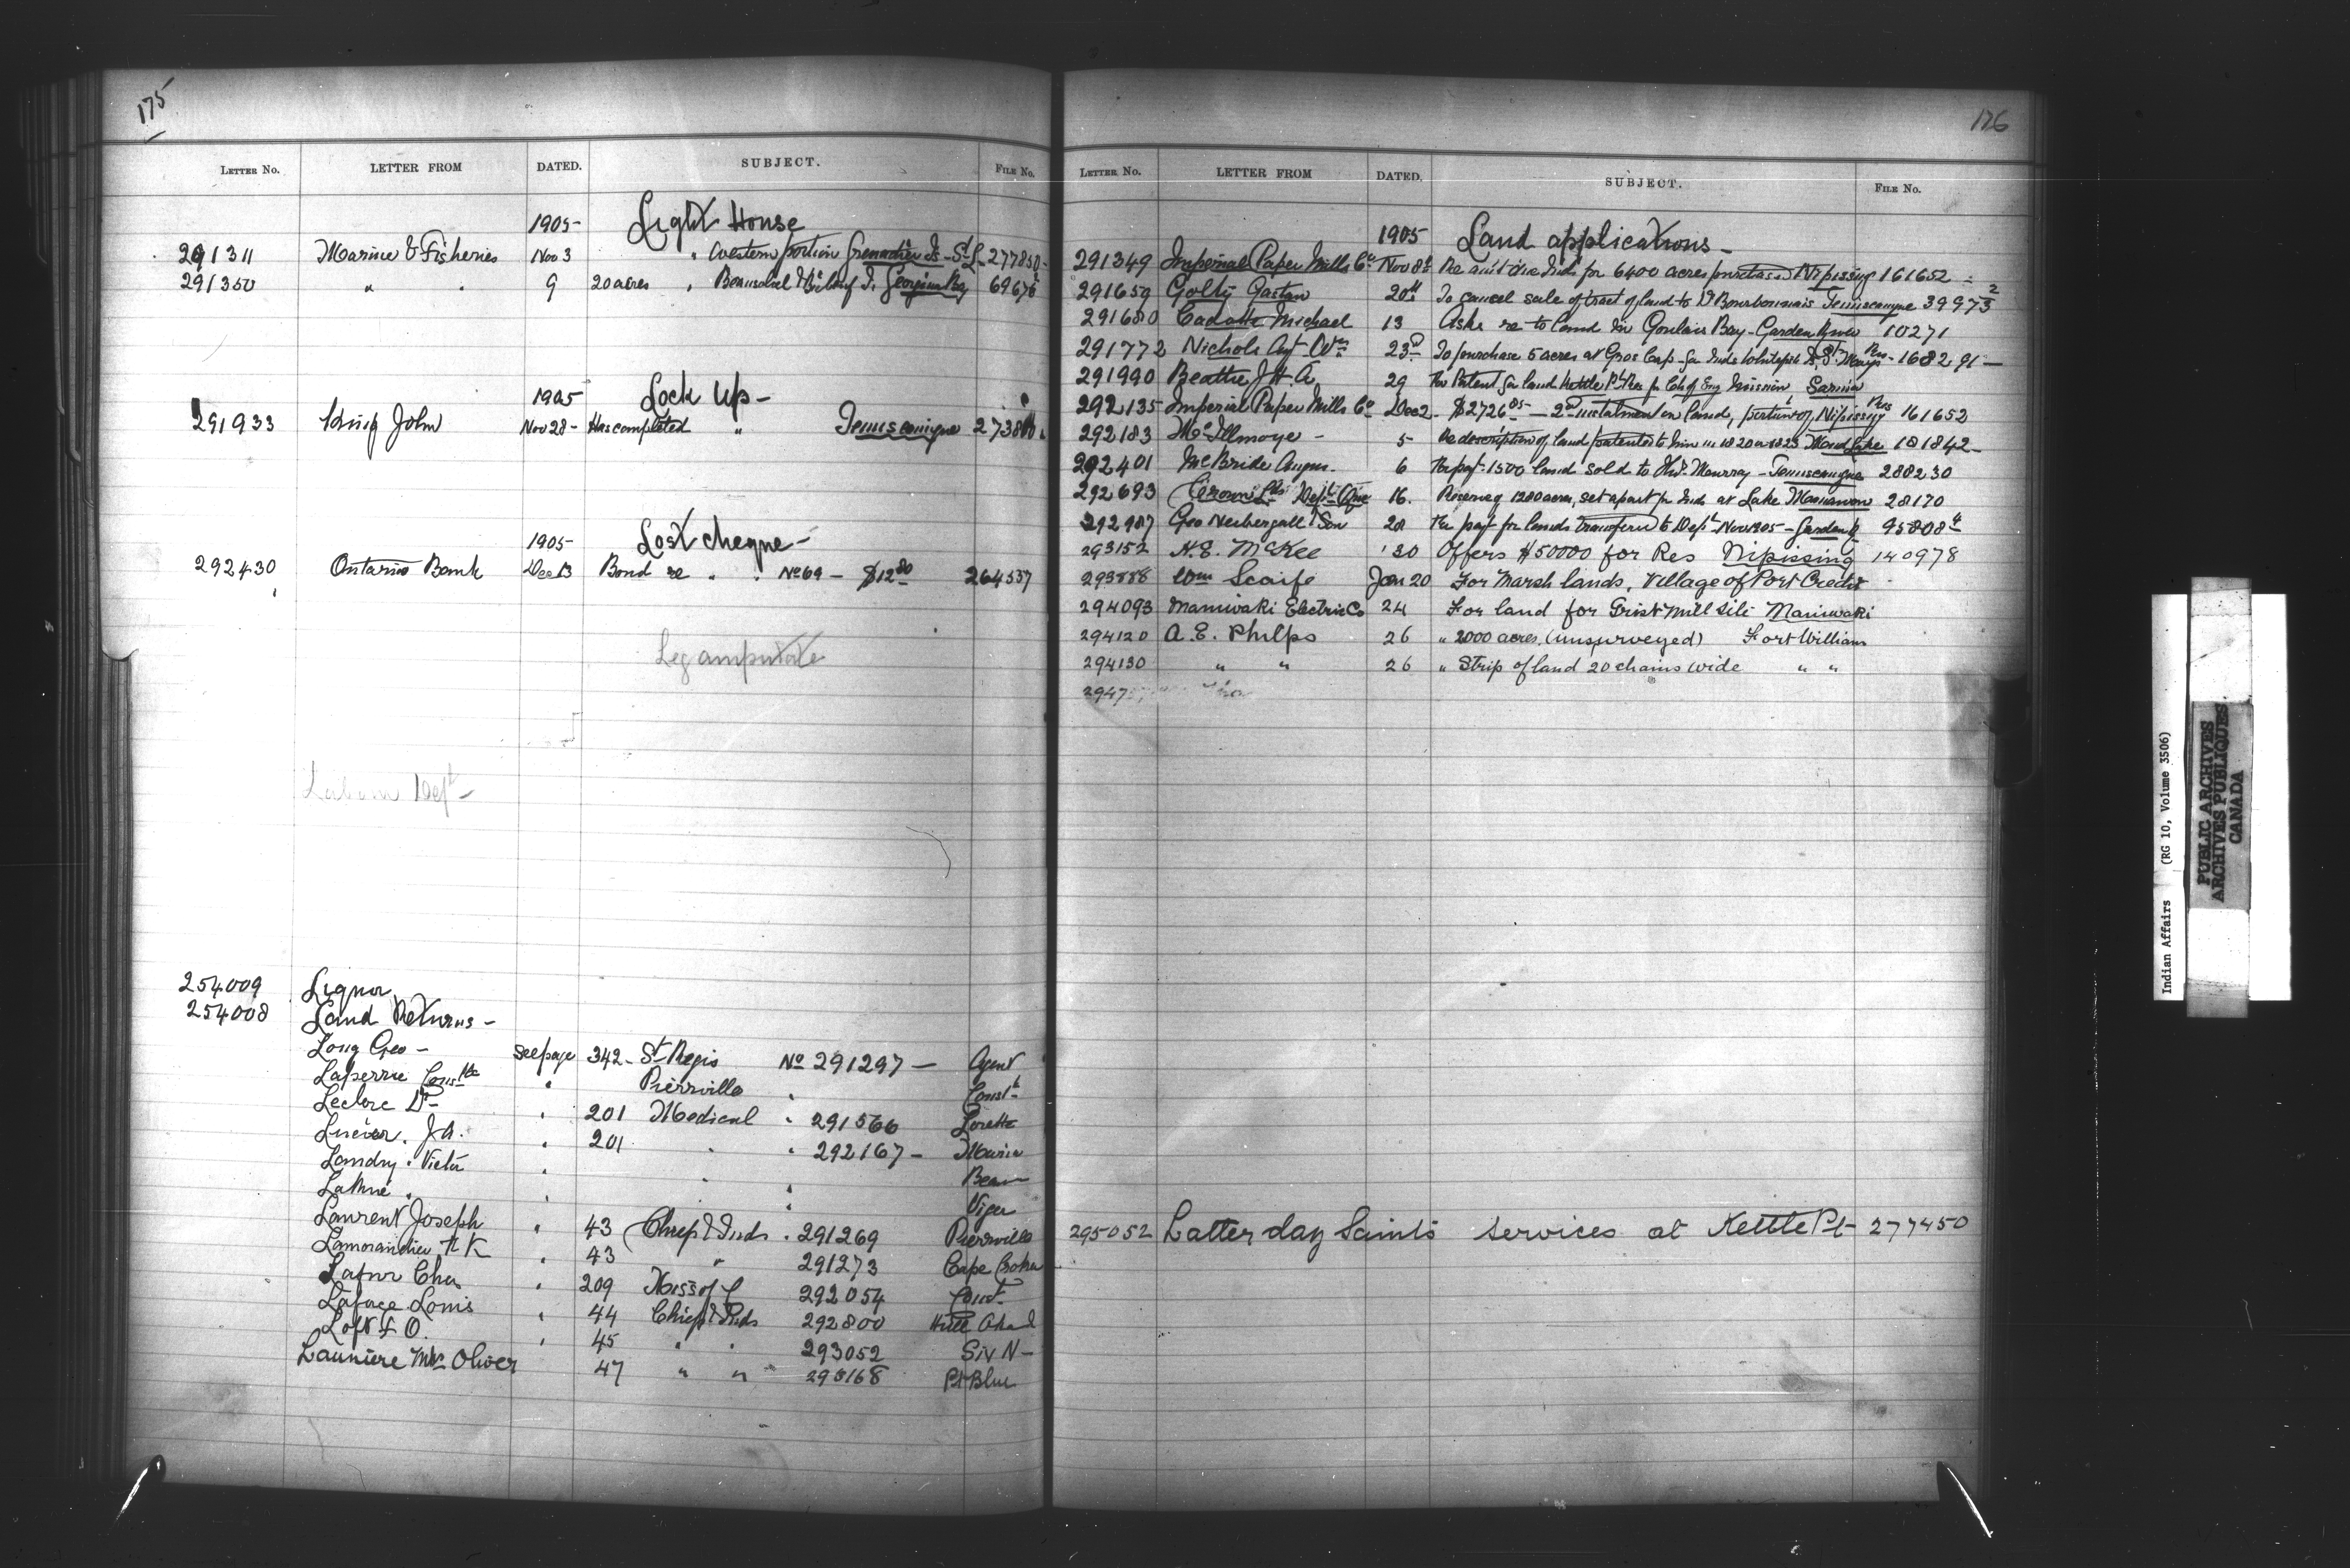 175
LETTER No. LETTER FROM DATED. SUBJECT. FILE No.
1905- Light House
291311 Marine & Fisheries Nov 3 " Western portion Grenadier Is - St L - 277850-
291350 " " 9 20 acres " Beausoleil I. Georgian Bay 69676
1905 Lock Up -
291933 King John Nov 28- Has completed " Temiscamigue 273800
1905- Lost cheque -
292430 Ontario Bank Dec 13 Bond re " " No 69 - $12 80 264537
Leg amputate
Labour Dept -
254009 Liquor
254008 Land Returns -
Long Geo - See page 342- St Regis No 291297 - Agent
Laperrie Constble " Pierrville " Const
Leclerc Dr " 201 Medical " 291566 Lorette
Lucier. J A. " 201 " " 292167 - Maria
Landry. Victor " " "
" " Viger
Laurent Joseph " 43 Chiefs & Inds. 291269 Pierrville
Lamorandiere F K " 43 " 291273 Cape Croker
Lafur Chas " 209 Miss of 292054 Const
Lafage Louis " 44 Chiefs & Inds 292800
Loft F O. " 45 " " 293052 Six N -
Launiere Mrs Oliver 47 " " 293168 Pt Blue
176
LETTER No. LETTER FROM DATED. SUBJECT. FILE No.
1905 Land applications -
291349 Imperial Paper Mills Co Nov 8th Re amt due Inds for 6400 acres purchased Nipissing 161652
291659 Golty Gaston 20th To cancel sale of tract of land to Dr Bourbonnais Temiscamgue 39973 2
291680 Cadotte Michael 13 Asks re to land in Goulais Bay - Garden River 10271
291772 Nichols Agt Wm 23rd To purchase 5 acres at Gros Cap - for Inds Whitefish Is, St Marys Res - 168291 -
291990 Beattie J H. A 29 Re Patent for land Kettle Pt Res for Ch of Eng Mission Sarnia
292135 Imperial Paper Mills Co Dec 2 - $2726 85 - 2nd instalment on land, portion of, Nipissing Res 161652
292183 McIllmoye - 5- Re description of land patented to him in 1820 or 1823 Mud Lake 181842-
292401 McBride Angus. 6 Re pat - 1500 land sold to Thos. Murray - Temiscamigue 288230
292693 Crown Lds Dept Que 16. Reserving 1280 acres, set apart for Inds at Lake 28170
292987 Geo Neibergall & Son 28 Re pay for lands transferred to Dept Nov 1905 - Garden R 95808 4
293152 H. E. McKee " 30 Offers $50000 for Res Nipissing 140978
293888 Wm Scaife Jan 20 For Marsh lands, Village of Port Credit
294093 Maniwaki Electric Co 24 For land for Grist Mill site Maniwaki
294120 A. E. Phelps 26 " 2000 acres (unsurveyed) Fort William
294130 " " 26 " Strip of land 20 chains wide " "
2947
295052 Latter day Saints services at Kettle Pt - 277450
Indian Affairs (RG 10, Volume 3506)
PUBLIC ARCHIVES
ARCHIVES PUBLIQUES
CANADA